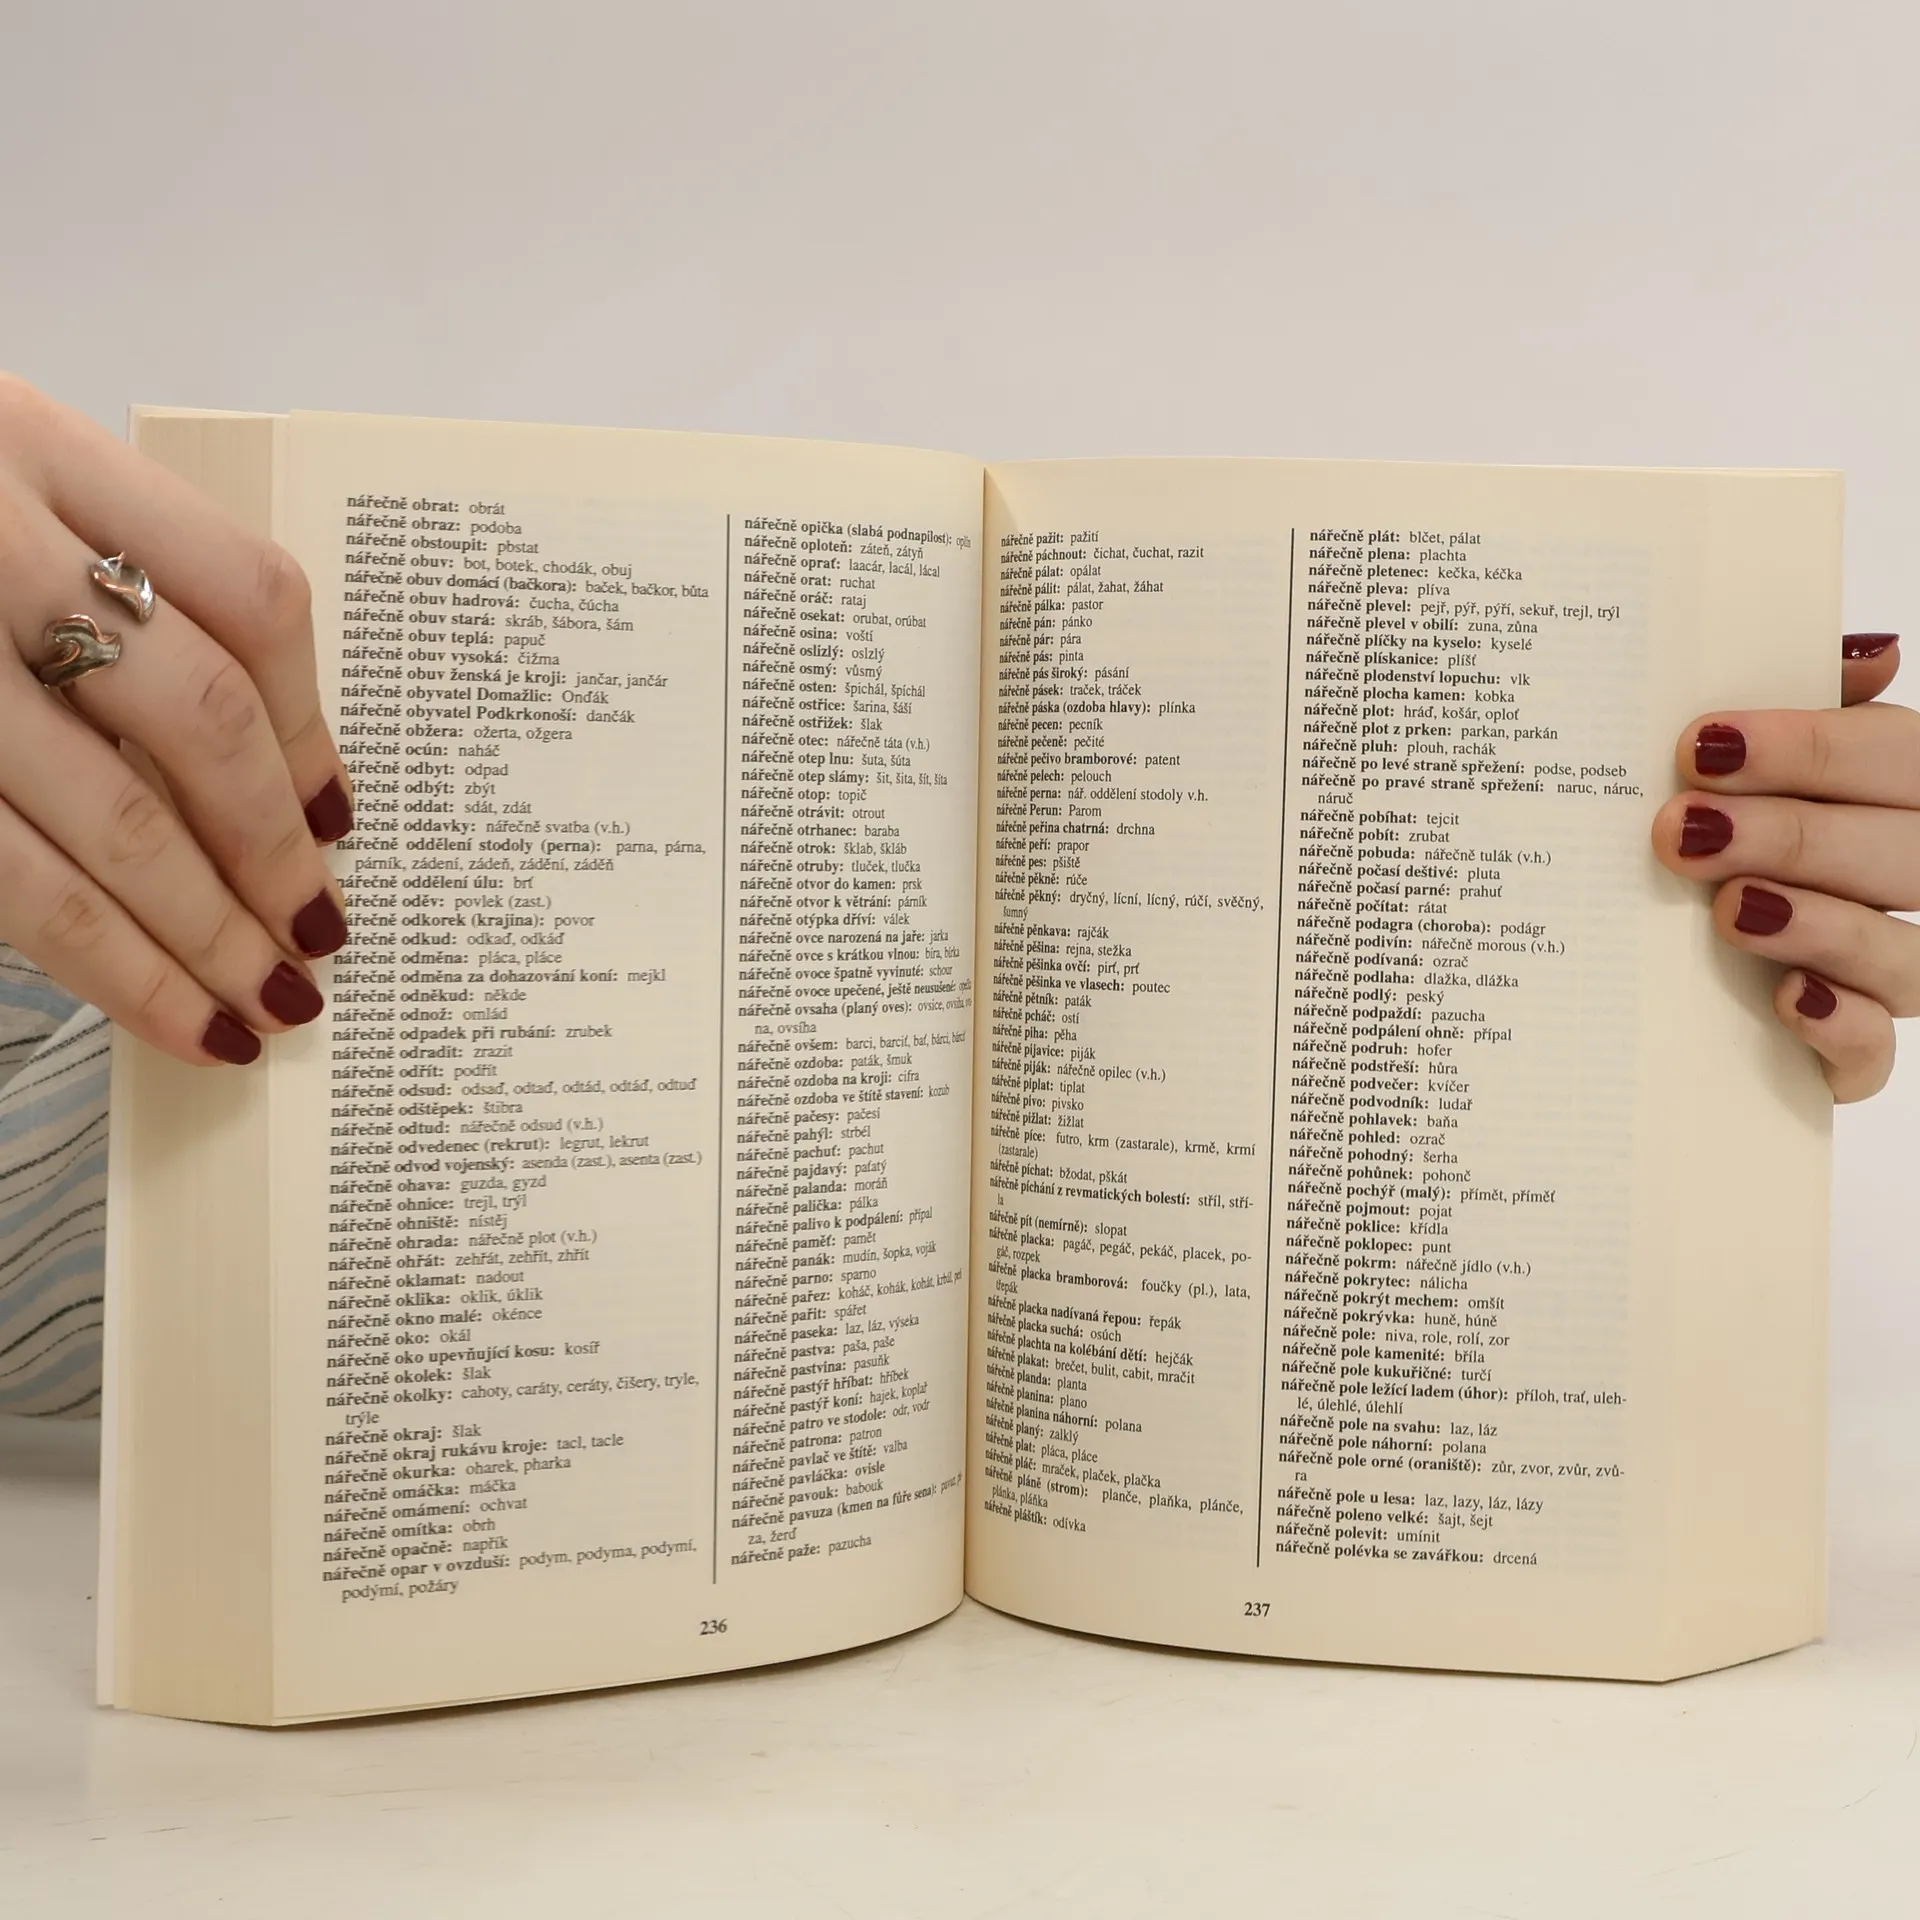 nářečně obrat: obrát
nářečně obraz: podoba
nářečně obstoupit: pbstat
nářečně obuv: bot, botek, chodák, obuj
nářečně obuv domácí (bačkora): baček, bačkor, bůta
nářečně obuv hadrová: čucha, čúcha
nářečně obuv stará: skráb, šábora, šám
nářečně obuv teplá: papuč
nářečně obuv vysoká: čižma
nářečně obuv ženská je kroji: jančar, jančár
nářečně obyvatel Domažlic: Onďák
nářečně obyvatel Podkrkonoší: dančák
nářečně obžera: ožerta, ožgera
nářečně ocún: naháč
nářečně odbyt: odpad
nářečně odbýt: zbýt
nářečně oddat: sdát, zdát
nářečně oddavky: nářečně svatba (v.h.)
nářečně oddělení stodoly (perna): parna, párna,
párník, zádení, zádeň, zádění, záděň
nářečně oddělení úlu: brť
nářečně oděv: povlek (zast.)
nářečně odkorek (krajina): povor
nářečně odkud: odkaď, odkáď
nářečně odměna: pláca, pláce
nářečně odměna za dohazování koní: mejkl
nářečně odněkud: někde
nářečně odnož: omlád
nářečně odpadek při rubání: zrubek
nářečně odradit: zrazit
nářečně odřít: podřít
nářečně odsud: odsaď, odtaď, odtád, odtáď, odtuď
nářečně odštěpek: štibra
nářečně odtud: nářečně odsud (v.h.)
nářečně odvedenec (rekrut): legrut, lekrut
nářečně odvod vojenský: asenda (zast.), asenta (zast.)
nářečně ohava: guzda, gyzd
nářečně ohnice: trejl, trýl
nářečně ohniště: nístěj
nářečně ohrada: nářečně plot (v.h.)
nářečně ohřát: zehřát, zehřít, zhřít
nářečně oklamat: nadout
nářečně oklika: oklik, úklik
nářečně okno malé: okénce
nářečně oko: okál
nářečně oko upevňující kosu: kosíř
nářečně okolek: šlak
nářečně okolky: cahoty, caráty, ceráty, čišery, tryle,
trýle
nářečně okraj: šlak
nářečně okraj rukávu kroje: tacl, tacle
nářečně okurka: oharek, pharka
nářečně omáčka: máčka
nářečně omámení: ochvat
nářečně omítka: obrh
nářečně opačně: napřík
nářečně opar v ovzduší: podym, podyma, podymí,
podýmí, požáry
nářečně opička (slabá podnapilost):
nářečně oploteň: záteň, zátyň
nářečně oprať: laacár, lacál, lácal
nářečně orat: ruchat
nářečně oráč: rataj
nářečně osekat: orubat, orúbat
nářečně osina: voští
nářečně oslizlý: oslzlý
nářečně osmý: vůsmý
nářečně osten: špichál, špíchál
nářečně ostřice: šarina, šáší
nářečně ostřižek: šlak
nářečně otec: nářečně táta (v.h.)
nářečně otep lnu: šuta, šúta
nářečně otep slámy: šit, šita, šít, šíta
nářečně otop: topič
nářečně otrávit: otrout
nářečně otrhanec: baraba
nářečně otrok: šklab, škláb
nářečně otruby: tluček, tlučka
nářečně otvor do kamen: prsk
nářečně otvor k větrání: párník
nářečně otýpka dříví: válek
nářečně ovce narozená na jaře: jarka
nářečně ovce s krátkou vlnou: bíra, bírka
nářečně ovoce špatně vyvinuté: schour
nářečně ovoce upečené, ještě neusušené:
nářečně ovsaha (planý oves): ovsice, ovsiha,
na, ovsíha
nářečně ovšem: barci, barciť, bať, bárci, bárciť
nářečně ozdoba: paták, šmuk
nářečně ozdoba na kroji: cifra
nářečně ozdoba ve štítě stavení: kozub
nářečně pačesy: pačesí
nářečně pahýl: strbél
nářečně pachuť: pachut
nářečně pajdavý: paťatý
nářečně palanda: moráň
nářečně palička: pálka
nářečně palivo k podpálení: přípal
nářečně paměť: pamět
nářečně panák: mudín, šopka, voják
nářečně parno: sparno
nářečně pařez: koháč, kohák, kohát,
nářečně pařit: spářet
nářečně paseka: laz, láz, výseka
nářečně pastva: paša, paše
nářečně pastvina: pasuňk
nářečně pastýř hříbat: hříbek
nářečně pastýř koní: hajek, koplař
nářečně patro ve stodole: odr, vodr
nářečně patrona: patron
nářečně pavlač ve štítě: valba
nářečně pavláčka: ovisle
nářečně pavouk: babouk
nářečně pavuza (kmen na fůře sena):
za, žerď
nářečně paže: pazucha
236
nářečně pažit: pažití
nářečně páchnout: čichat, čuchat, razit
nářečně pálat: opálat
nářečně pálit: pálat, žahat, žáhat
nářečně pálka: pastor
nářečně pán: pánko
nářečně pár: pára
nářečně pás: pinta
nářečně pás široký: pásání
nářečně pásek: traček, tráček
nářečně páska (ozdoba hlavy): plínka
nářečně pecen: pecník
nářečně pečeně: pečité
nářečně pečivo bramborové: patent
nářečně pelech: pelouch
nářečně perna: nář. oddělení stodoly v.h.
nářečně Perun: Parom
nářečně peřina chatrná: drchna
nářečně peří: prapor
nářečně pes: pšiště
nářečně pěkně: rúče
nářečně pěkný: dryčný, lícní, lícný, rúčí, svěčný,
šumný
nářečně pěnkava: rajčák
nářečně pěšina: rejna, stežka
nářečně pěšinka ovčí: pirť, prť
nářečně pěšinka ve vlasech: poutec
nářečně pětník: paták
nářečně pcháč: ostí
nářečně piha: pěha
nářečně pijavice: piják
nářečně piják: nářečně opilec (v.h.)
nářečně piplat: tiplat
nářečně pivo: pivsko
nářečně pižlat: žižlat
nářečně píce: futro, krm (zastarale), krmě, krmí
(zastarale)
nářečně píchat: bžodat, pškát
nářečně píchání z revmatických bolestí: stříl, stří-
la
nářečně pít (nemírně): slopat
nářečně placka: pagáč, pegáč, pekáč, placek, po-
gáč, rozpek
nářečně placka bramborová: foučky (pl.), lata,
třepák
nářečně placka nadívaná řepou: řepák
nářečně placka suchá: osúch
nářečně plachta na kolébání dětí: hejčák
nářečně plakat: brečet, bulit, cabit, mračit
nářečně planda: planta
nářečně planina: plano
nářečně planina náhorní: polana
nářečně planý: zalklý
nářečně plat: pláca, pláce
nářečně pláč: mraček, plaček, plačka
nářečně pláně (strom): planče, plaňka, plánče,
plánka, pláňka
nářečně pláštík: odívka
nářečně plát: blčet, pálat
nářečně plena: plachta
nářečně pletenec: kečka, kéčka
nářečně pleva: plíva
nářečně plevel: pejř, pýř, pýří, sekuř, trejl, trýl
nářečně plevel v obilí: zuna, zůna
nářečně plíčky na kyselo: kyselé
nářečně plískanice: plíšť
nářečně plodenství lopuchu: vlk
nářečně plocha kamen: kobka
nářečně plot: hráď, košár, oploť
nářečně plot z prken: parkan, parkán
nářečně pluh: plouh, rachák
nářečně po levé straně spřežení: podse, podseb
nářečně po pravé straně spřežení: naruc, náruc,
náruč
nářečně pobíhat: tejcit
nářečně pobít: zrubat
nářečně pobuda: nářečně tulák (v.h.)
nářečně počasí deštivé: pluta
nářečně počasí parné: prahuť
nářečně počítat: rátat
nářečně podagra (choroba): podágr
nářečně podivín: nářečně morous (v.h.)
nářečně podívaná: ozrač
nářečně podlaha: dlažka, dlážka
nářečně podlý: peský
nářečně podpaždí: pazucha
nářečně podpálení ohně: přípal
nářečně podruh: hofer
nářečně podstřeší: hůra
nářečně podvečer: kvíčer
nářečně podvodník: ludař
nářečně pohlavek: baňa
nářečně pohled: ozrač
nářečně pohodný: šerha
nářečně pohůnek: pohonč
nářečně pochýř (malý): přímět, příměť
nářečně pojmout: pojat
nářečně poklice: křídla
nářečně poklopec: punt
nářečně pokrm: nářečně jídlo (v.h.)
nářečně pokrytec: nálicha
nářečně pokrýt mechem: omšít
nářečně pokrývka: huně, húně
nářečně pole: niva, role, rolí, zor
nářečně pole kamenité: bříla
nářečně pole kukuřičné: turčí
nářečně pole ležící ladem (úhor): příloh, trať, uleh-
lé, úlehlé, úlehlí
nářečně pole na svahu: laz, láz
nářečně pole náhorní: polana
nářečně pole orné (oraniště): zůr, zvor, zvůr, zvů-
ra
nářečně pole u lesa: laz, lazy, láz, lázy
nářečně poleno velké: šajt, šejt
nářečně polevit: umínit
nářečně polévka se zavářkou: drcená
237